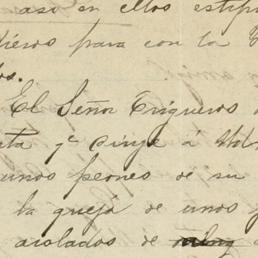 así en ellos estip
dieros para con la
os.
El Señor Trigueros
ta qe dirije á
unos peones de su
la queja de unos
aislados de